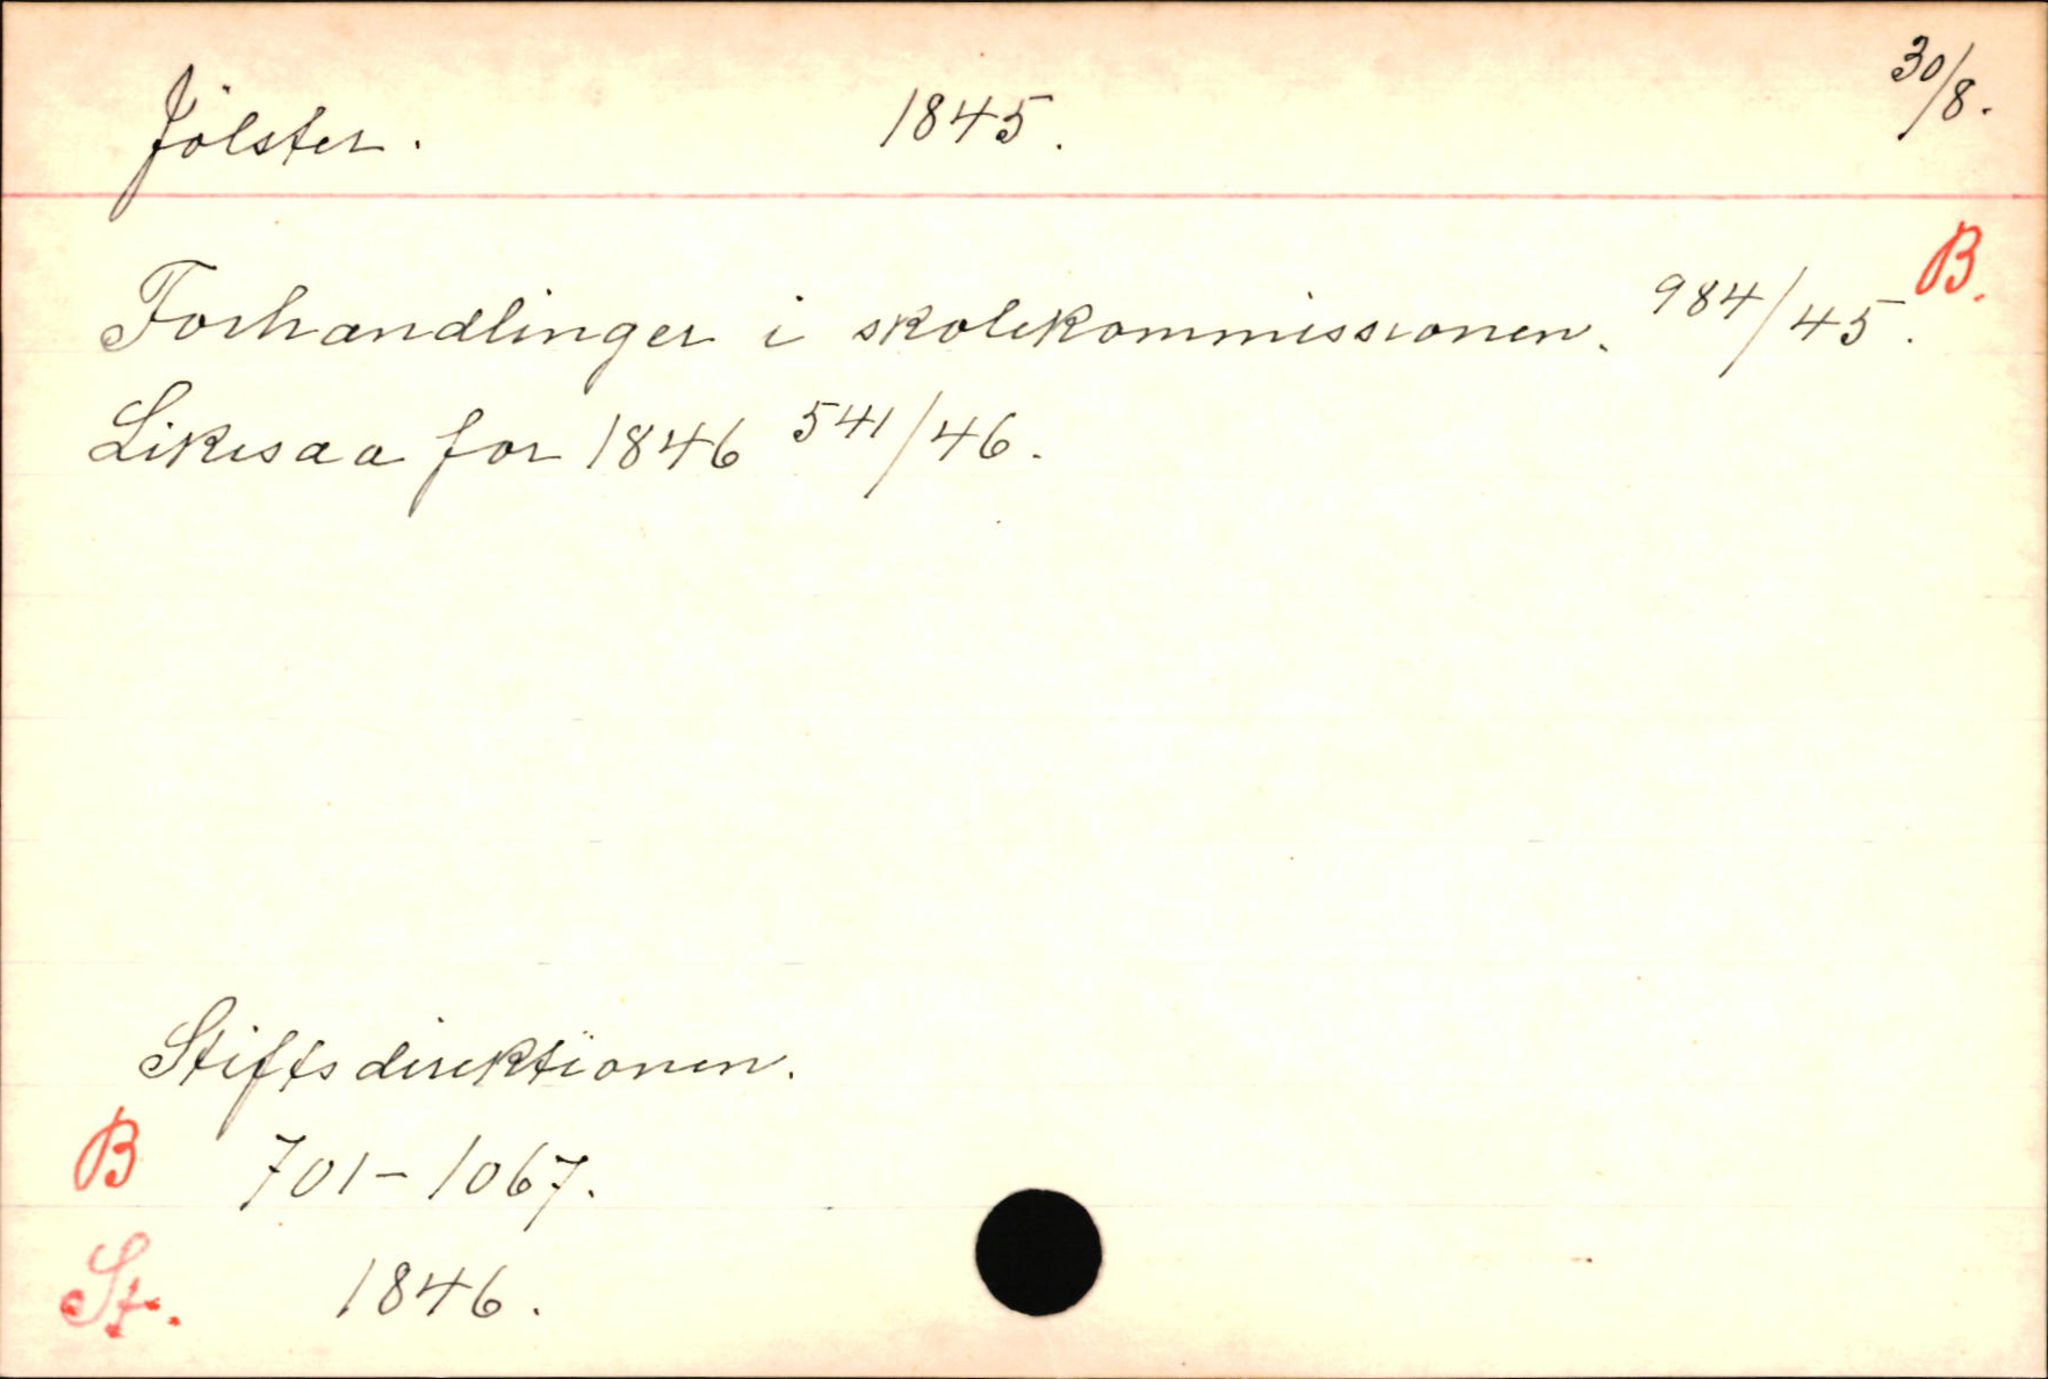 Jölster. 1845. 30/8.
Forhandlinger i skolekommissionen. 984/45. B.
Likesaa for 1846 541/46.
Stiftsdirektionen.
B 701-1067.
St. 1846.